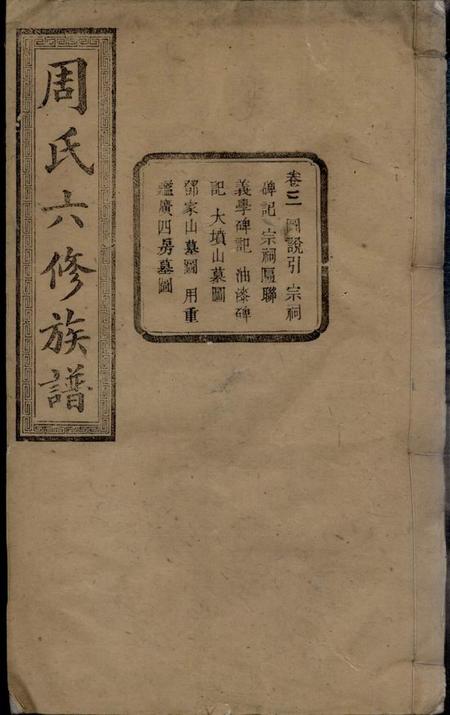 周氏六修族譜
卷二 圖說引 宗祠
碑記 宗祠匾聯
義學碑記 油漆碑
記 大墳山墓圖
鄧家山墓圖 用重
鑑廣四房墓圖